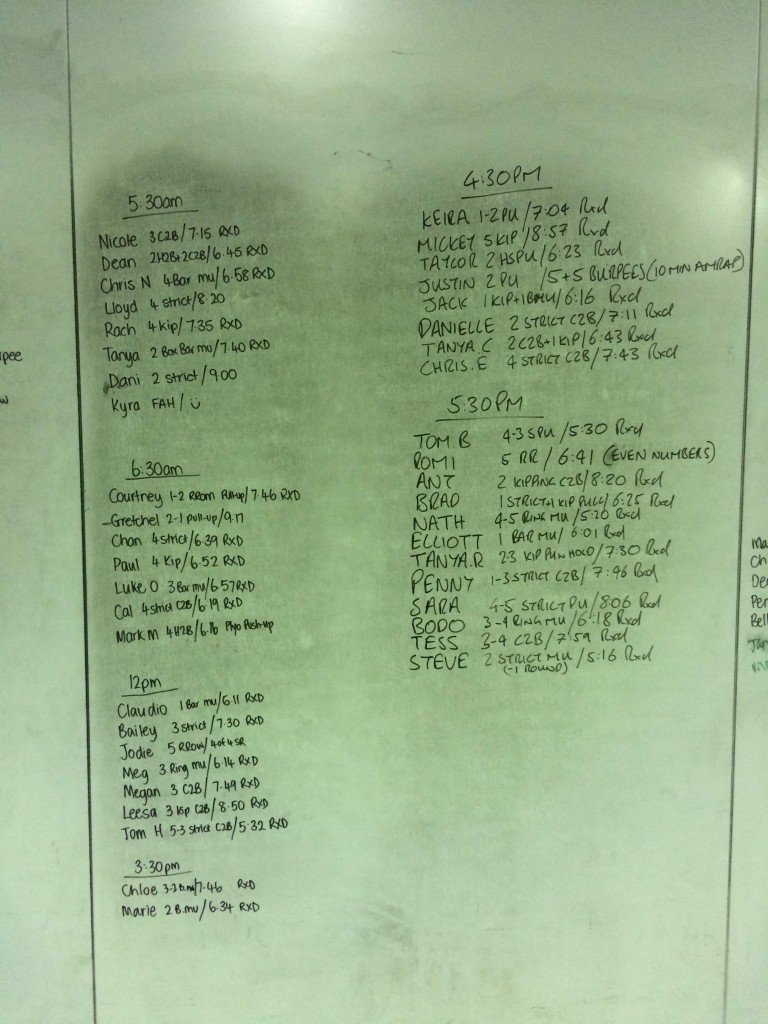 5:30am
Nicole 3C2B/7.15 RXD
Dean 2H2B+2C2B/6.45 RXD
Chris N 4 Bar mu/6.58 RXD
Lloyd 4 strict/8.20
Rach 4 Kip/7.35 RXD
Tanya 2 Box Bar mu/7.40 RXD
Dani 2 strict/9.00
Kyra FAH/
6:30am
Courtney 1-2 RRom Pull-up/7.46 RXD
Gretchel 2-1 pull-up/9.17
Chan 4 strict/6.39 RXD
Paul 4 Kip/6.52 RXD
Luke O 3 Bar mu/6.57 RXD
Cal 4 strict C2B/6.19 RXD
Mark M 4H2B/6.16 Plyo Push-up
12pm
Claudio 1 Bar mu/6.11 RXD
Bailey 3 strict/7.30 RXD
Jodie 5 RRow/4 of 4 SR
Meg 3 Ring mu/6.14 RXD
Megan 3 C2B/7.49 RXD
Leesa 3 Kip C2B/8.50 RXD
Tom H 5-3 strict C2B/5.32 RXD
3:30pm
Chloe 3-2 B.mu/7.46 RXD
Marie 2 B.mu/6.34 RXD
4:30PM
KEIRA 1-2PU/7:04 Rxd
MICKEY 5 KIP/8:57 Rxd
TAYLOR 2 HSPU/6:23 Rxd
JUSTIN 2 PU /5+5 BURPEES (10 MIN AMRAP)
JACK 1 KIP+1BMU/6:16 Rxd
DANIELLE 2 STRICT C2B/7:11 Rxd
TANYA.C 2C2B+1KIP/6:43 Rxd
CHRIS.E 4 STRICT C2B/7:43 Rxd
5:30PM
TOM.B 4-3 SPU/5:30 Rxd
ROMI 5 RR/6:41 (EVEN NUMBERS)
ANT 2 KIPPING C2B/8:20 Rxd
BRAD 1 STRICT+1 KIP PULL/6:25 Rxd
NATH 4-5 RING MU/5:20 Rxd
ELLIOTT 1 BAR MU/6:01 Rxd
TANYA.R 2-3 KIP HOLD/7:30 Rxd
PENNY 1-3 STRICT C2B/7:46 Rxd
SARA 4-5 STRICT PU/8:06 Rxd
BODO 3-4 RING MU/6:18 Rxd
TESS 3-4 C2B/7:59 Rxd
STEVE 2 STRICT MU/5:16 Rxd
(-1 ROUND)